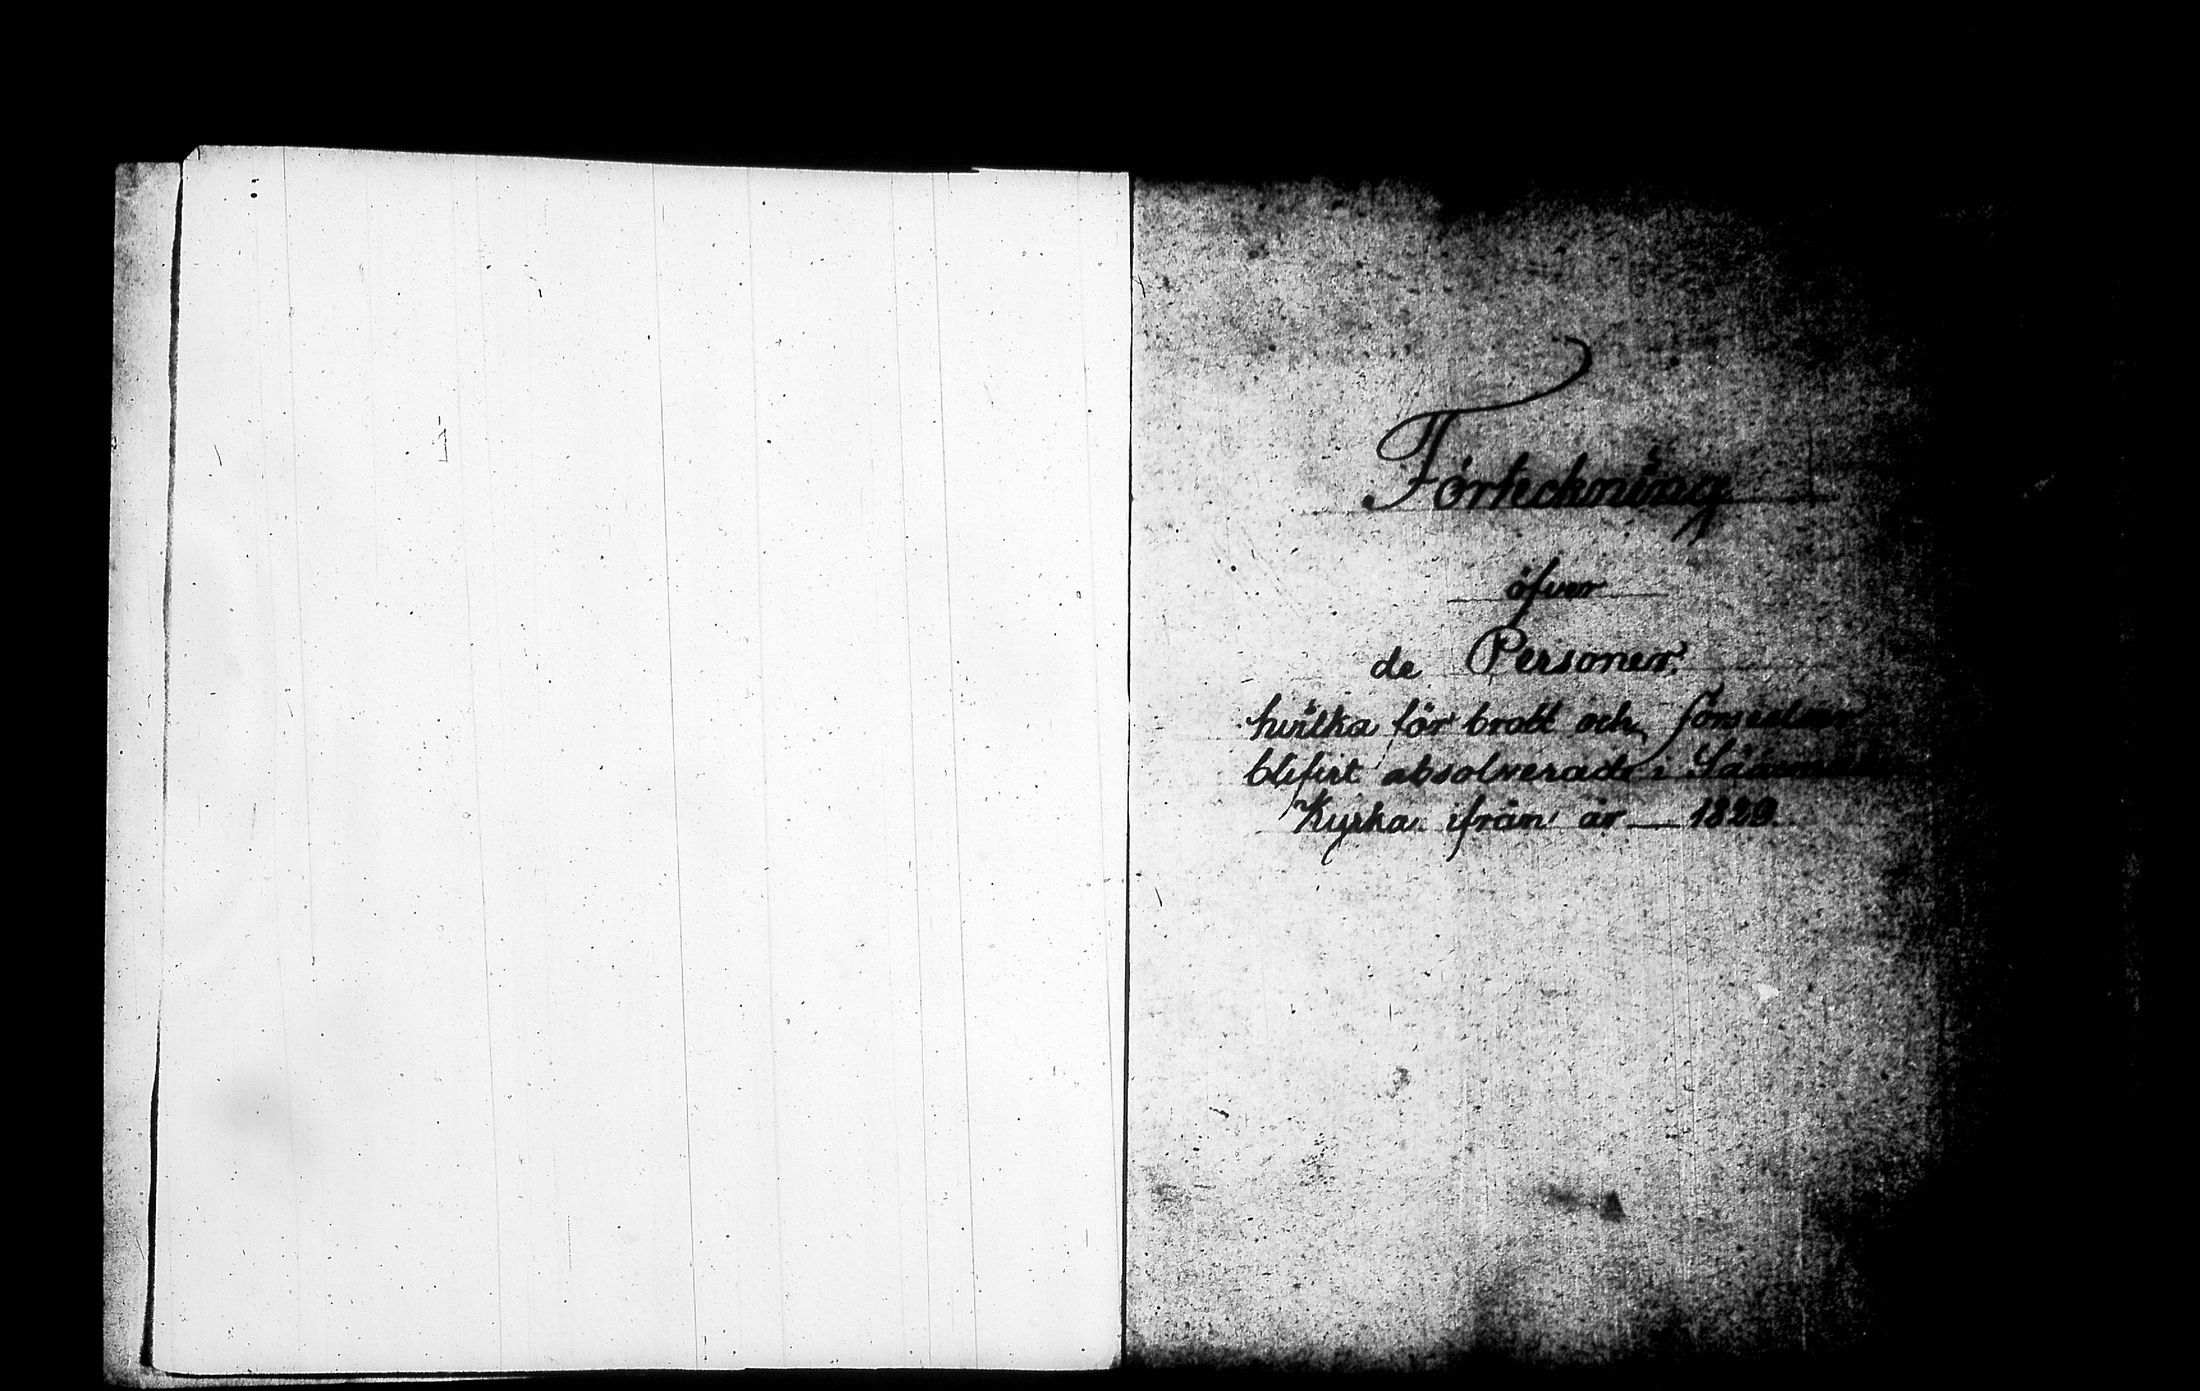 Förteckning
öfver
de Personer,
hvilka för brott och förseelser
blifvit absolverade i Sääxmäki
Kyrka ifrån år — 1829.